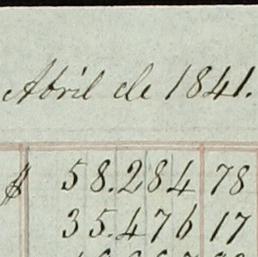 Abril de 1841.
$ 58.284 78
35.476 17